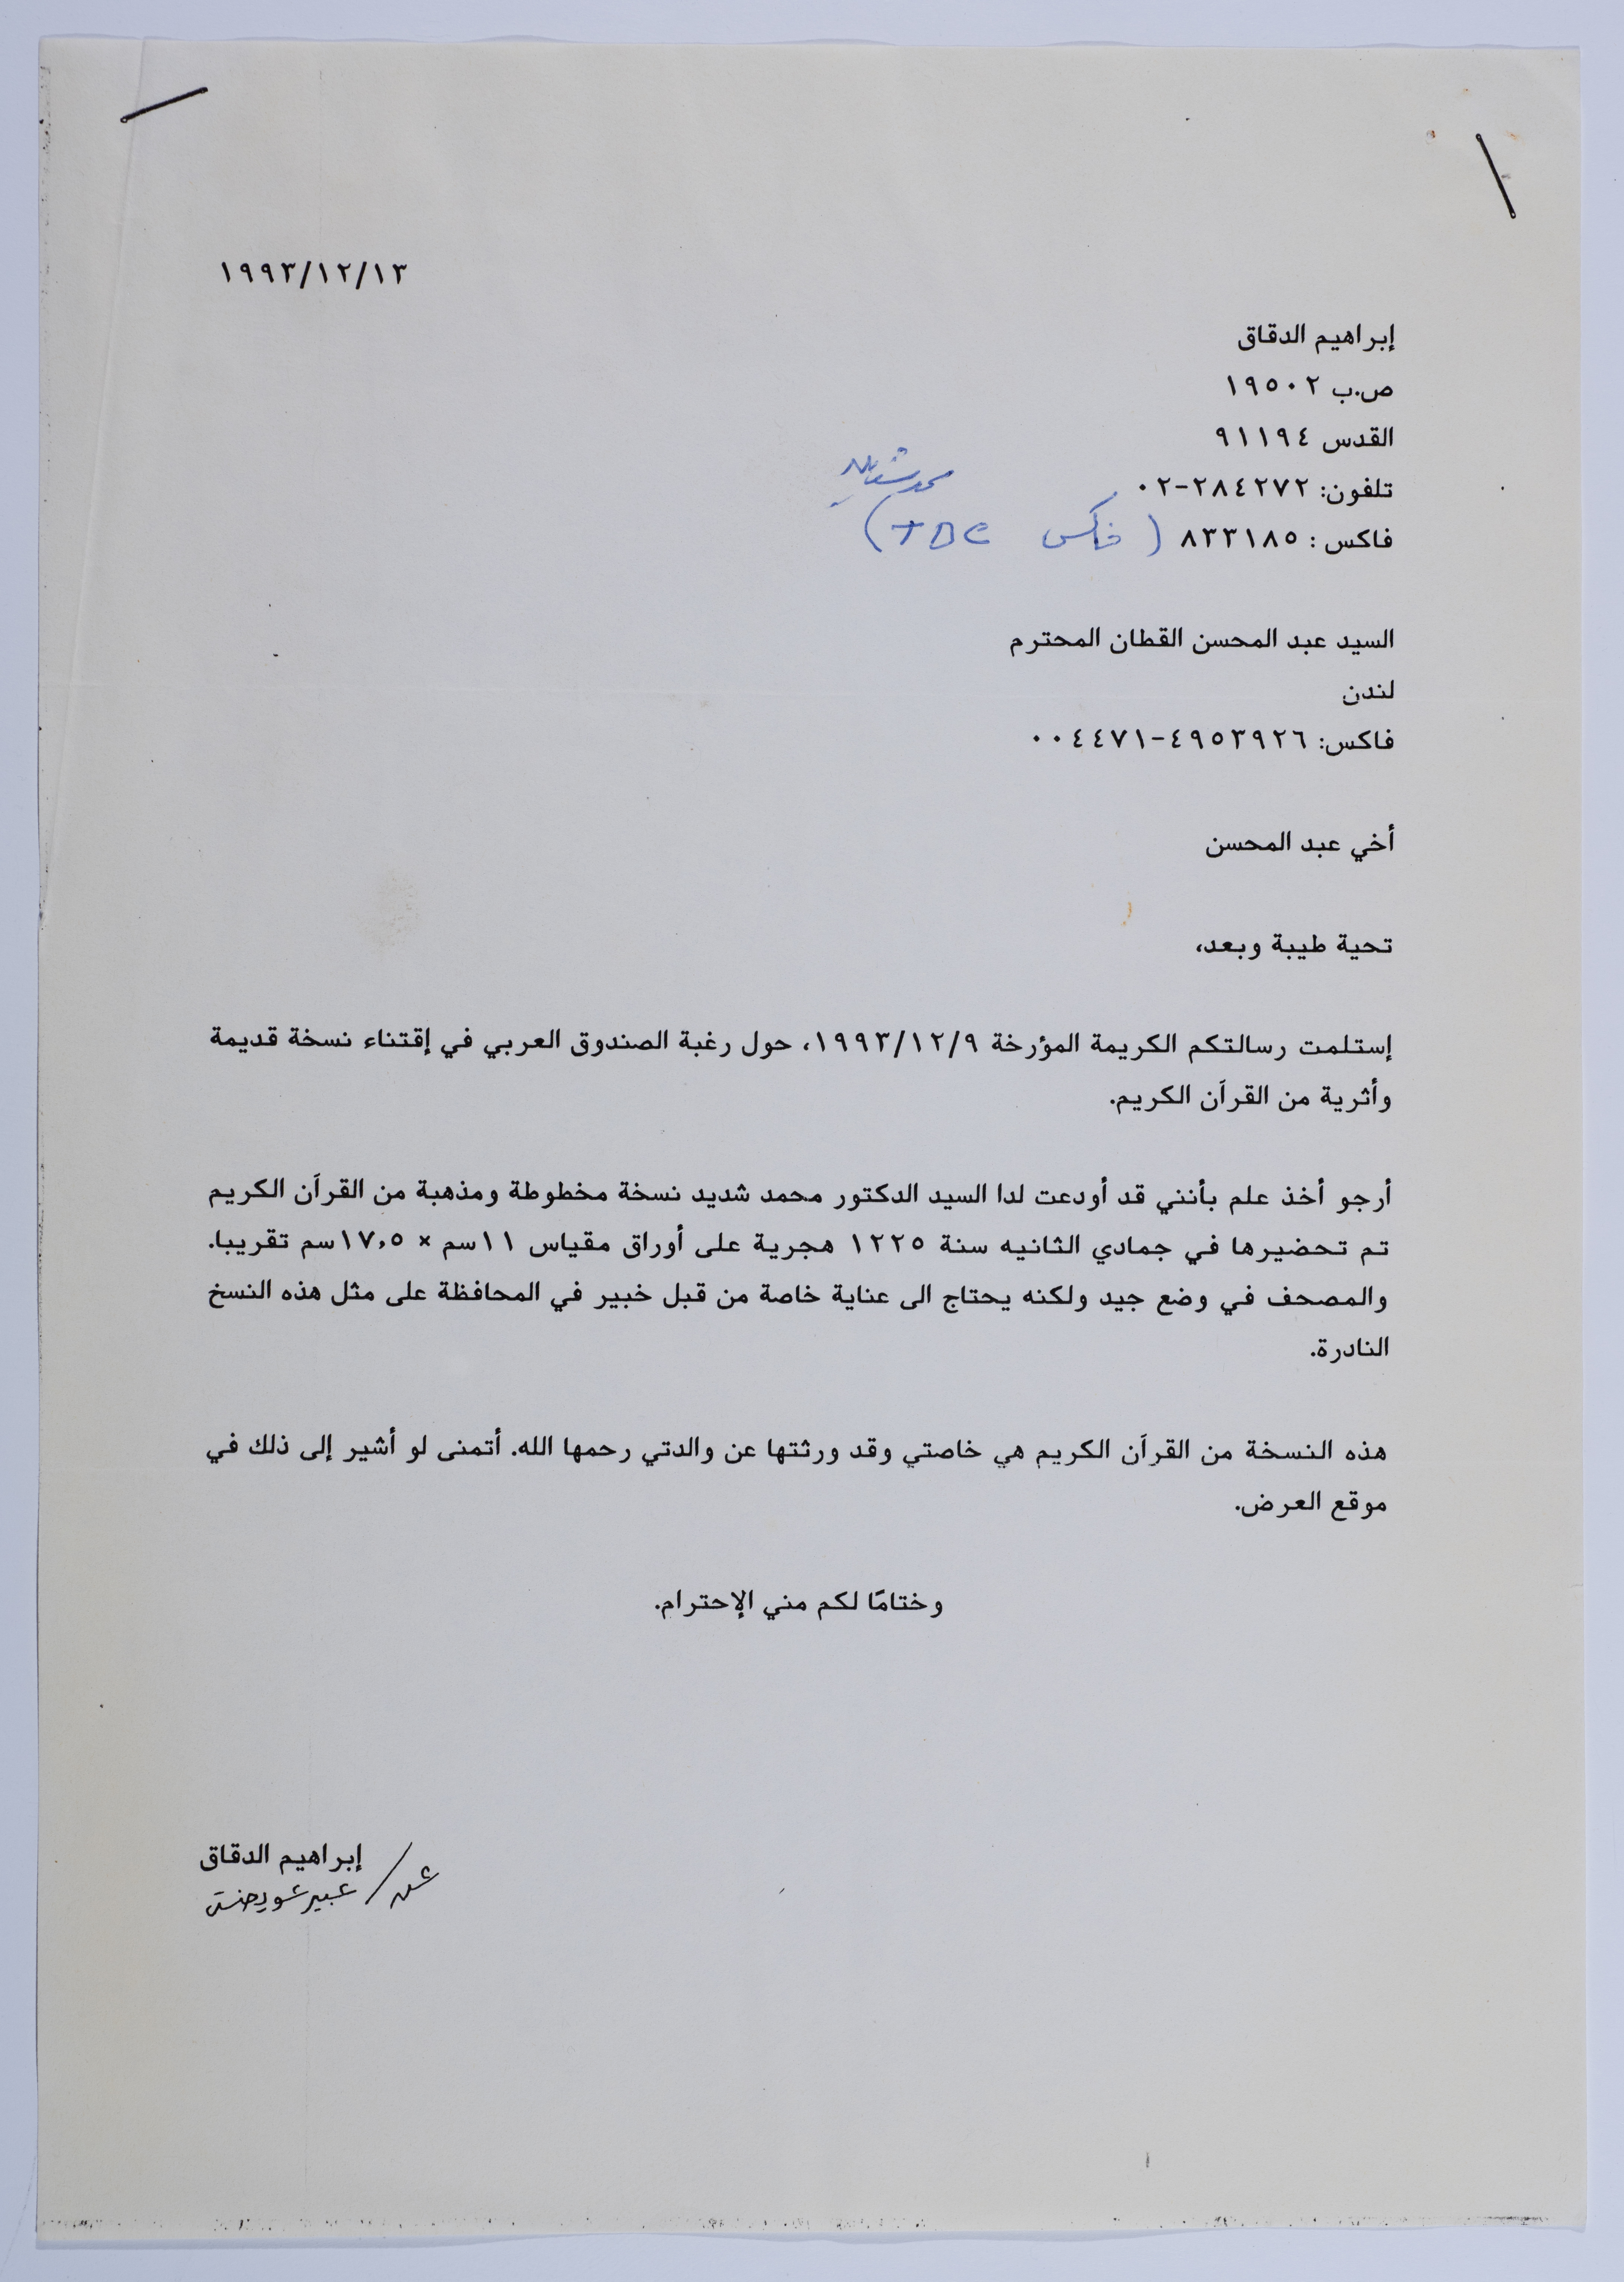 ١٩٩٣/١٢/١٣
إبراهيم الدقاق
ص.ب ١٩٥٠٢
القدس ٩١١٩٤
تلفون: ٢٨٤٢٧٢-٠٢
محمد شديد
فاكس : ٨٣٣١٨٥ ( فاكس TDC )
السيد عبد المحسن القطان المحترم
لندن
فاكس: ٤٩٥٣٩٢٦-٠٠٤٤٧١
أخي عبد المحسن
تحية طيبة وبعد،
إستلمت رسالتكم الكريمة المؤرخة ١٩٩٣/١٢/٩، حول رغبة الصندوق العربي في إقتناء نسخة قديمة
وأثرية من القرآن الكريم.
أرجو أخذ علم بأنني قد أودعت لدا السيد الدكتور محمد شديد نسخة مخطوطة ومذهبة من القرآن الكريم
تم تحضيرها في جمادي الثانيه سنة ١٢٢٥ هجرية على أوراق مقياس ١١سم × ١٧,٥سم تقريبا.
والمصحف في وضع جيد ولكنه يحتاج الى عناية خاصة من قبل خبير في المحافظة على مثل هذه النسخ
النادرة.
هذه النسخة من القرآن الكريم هي خاصتي وقد ورثتها عن والدتي رحمها الله. أتمنى لو أشير إلى ذلك في
موقع العرض.
وختامًا لكم مني الإحترام.
إبراهيم الدقاق
عن/ عبير